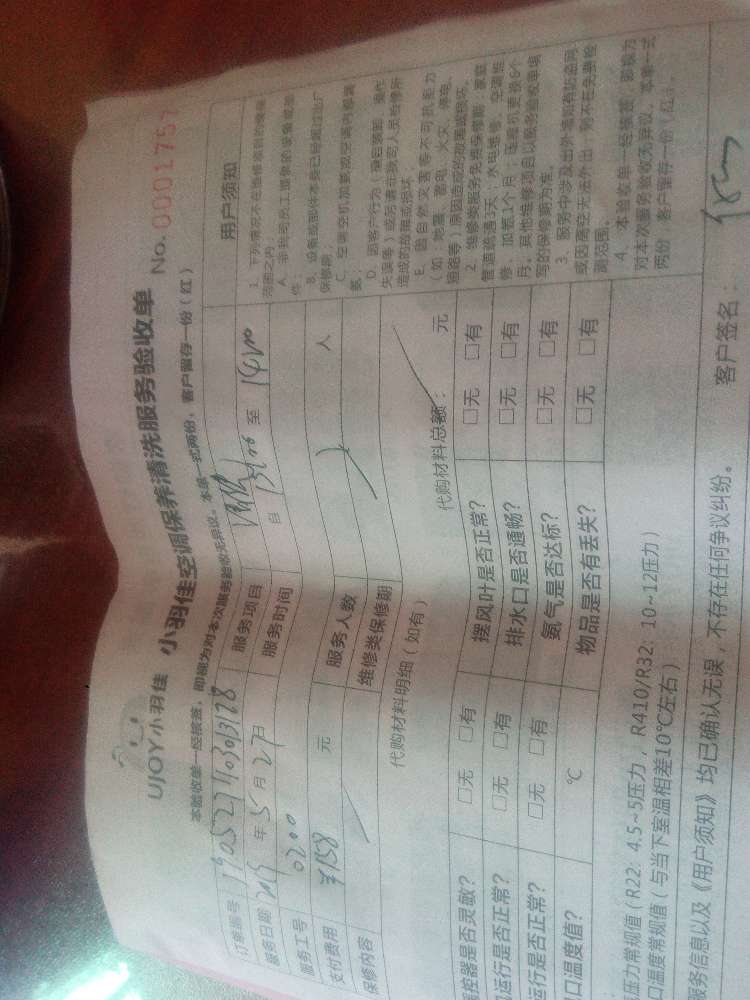 UJOY小羽佳 小羽佳空调保养清洗服务验收单
No. 0001757
本验收单一经核签，即视为对本次服务验收无异议。本单一式两份，客户留存一份（红）
订单编号
服务项目
服务日期 年5月27日
服务时间 自 至
服务工号 0200
支付费用 7158 元
服务人数 人
保修内容
维修类保修期
代购材料明细（如有）
代购材料总额： 元
控器是否灵敏？ □无 □有
摆风叶是否正常？ □无 □有
运行是否正常？ □无 □有
排水口是否通畅？ □无 □有
运行是否正常？ □无 □有
氨气是否达标？ □无 □有
口温度值？ ℃
物品是否有丢失？ □无 □有
压力常规值（R22：4.5~5压力，R410/R32：10~12压力）
口温度常规值（与当下室温相差10℃左右）
服务信息以及《用户须知》均已确认无误，不存在任何争议纠纷。
客户签名：
用户须知
1、下列情况不在维修项目的维保范围之内：
A、非我司员工提供的设备或部件；
B、设备或部件本身已经超过出厂保修期；
C、空调空机加氨或空调内部漏氨；
D、因客户行为（擅自装卸、操作失误等）或旁请非我司人员检修所造成的故障或损坏
E、因自然灾害等不可抗拒力（如：地震、雷电、火灾、停电、短路等）原因造成的故障或损坏。
2、维修类服务免费保修期：家庭管道疏通3天；水电维修、空调维修、加氨1个月；连接机更换6个月。其他维修项目以服务验收单填写的保修期为准。
3、服务中涉及出外墙如有防盗网或因高空无法外出，则不在免费检测范围。
4、本验收单一经核签，即视为对本次服务验收无异议。本单一式两份，客户留存一份（红）。